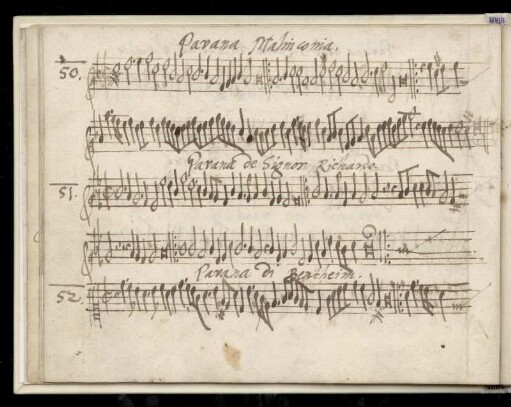 Pavana Malinconia.
50.
Pavana de Signor Richardo.
51.
Pavana di Bentheim.
52.